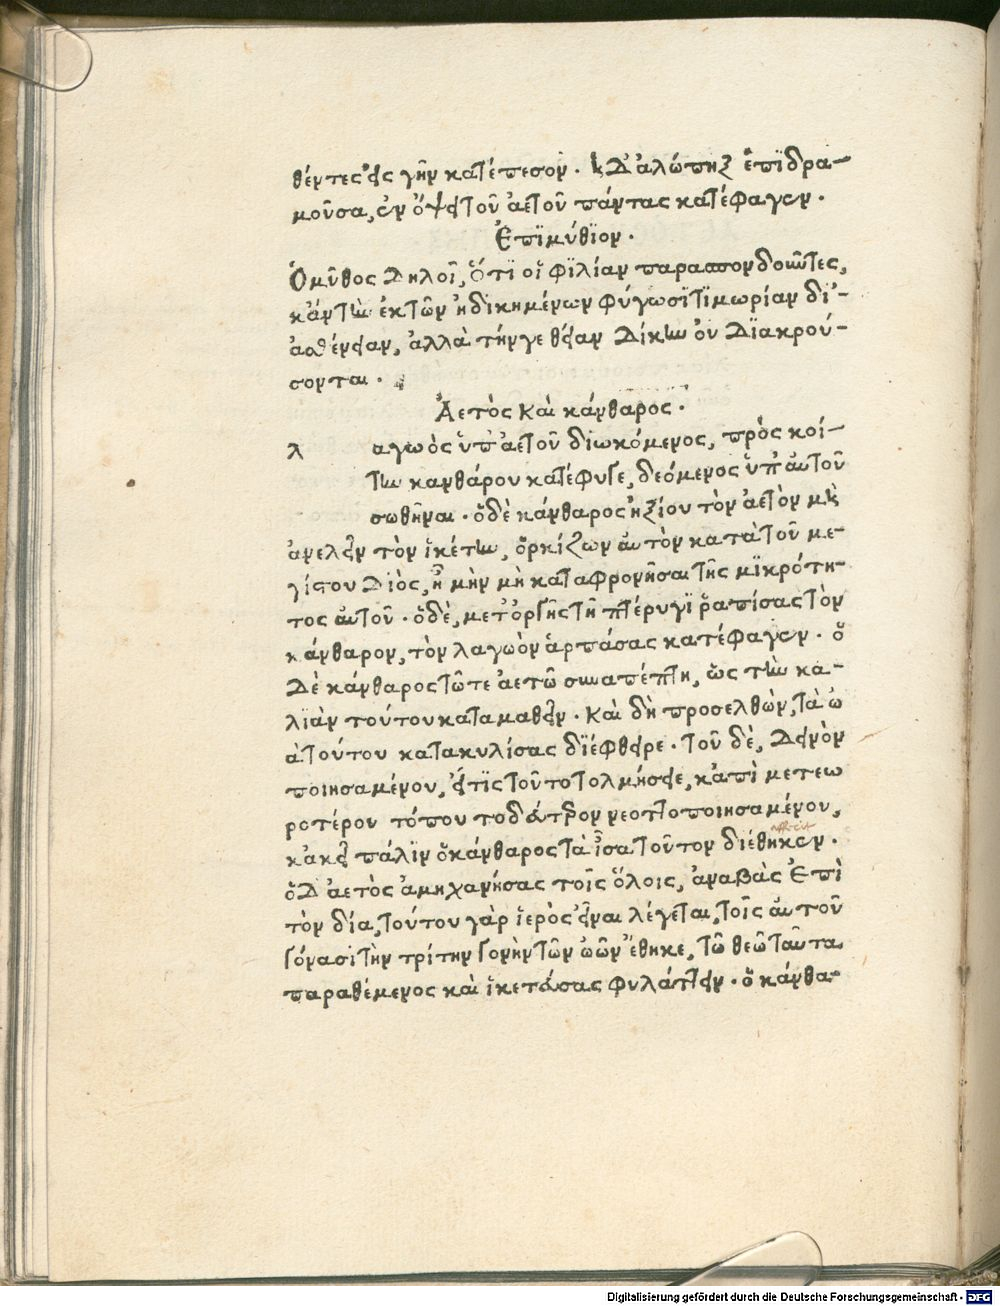 θέντες εἰς γῆν κατέπεσον. ἡ δ' ἀλώπηξ ἐπϊδρα-
μοῦσα, ἐν ὄψει τοῦ ἀετοῦ πάντας κατέφαγεν.
Ἐπϊμύθϊον.
Ὁ μῦθος δηλοῖ, ὅτϊ οἱ φϊλίαν παρασπονδοῦντες,
κἂν τὴν ἐκ τῶν ἠδικημένων φύγωσϊ τϊμωρίαν δι'
ἀσθένειαν, ἀλλὰ τήν γε θείαν δίκην οὐ δϊακρού-
σονται.
Ἀετὸς καὶ κάνθαρος.
λαγωὸς ὑπ' ἀετοῦ διωκόμενος, πρὸς κοί-
την κανθάρου κατέφυγε, δεόμενος ὑπ' αὐτοῦ
σωθῆναι. ὁ δὲ κάνθαρος ἠξίου τὸν ἀετὸν μὴ
ἀνελεῖν τὸν ἱκέτην, ὁρκίζων αὐτὸν κατὰ τοῦ με-
γίστου Διὸς, ἦ μὴν μὴ καταφρονῆσαι τῆς μϊκρότη-
τος αὐτοῦ. ὁ δὲ, μετ' ὀργῆς τῇ πτέρυγϊ ῥαπίσας τὸν
κάνθαρον, τὸν λαγωὸν ἁρπάσας κατέφαγεν. ὁ
δὲ κάνθαρος τῶτε ἀετῷ συναπέπτη, ὡς τὴν κα-
λϊὰν τούτου καταμαθεῖν. καὶ δὴ προσελθὼν, τὰ ὠ
ὰ τούτου κατακυλίσας δϊέφθειρε. τοῦ δὲ, δεινὸν
ποιησαμένου, εἴ τϊς τοῦτο τολμήσειε, κἀπὶ μετεω
ροτέρου τόπου τοδεύτερον νεοττοποιησαμένου,
κἀκεῖ πάλϊν ὁ κάνθαρος τὰ ἶσα τοῦτον διέθηκεν.
ὁ δ' ἀετὸς ἀμηχανήσας τοῖς ὅλοις, ἀναβὰς ἐπὶ
τὸν δία, τούτου γὰρ ἱερὸς εἶναι λέγεται, τοῖς αὐτοῦ
γόνασϊ τὴν τρίτην γονὴν τῶν ὠῶν ἔθηκε, τῷ θεῷ ταῦτα
παραθέμενος καὶ ἱκετεύσας φυλάττειν. ὁ κάνθα-
Digitalisierung gefördert durch die Deutsche Forschungsgemeinschaft - DFG